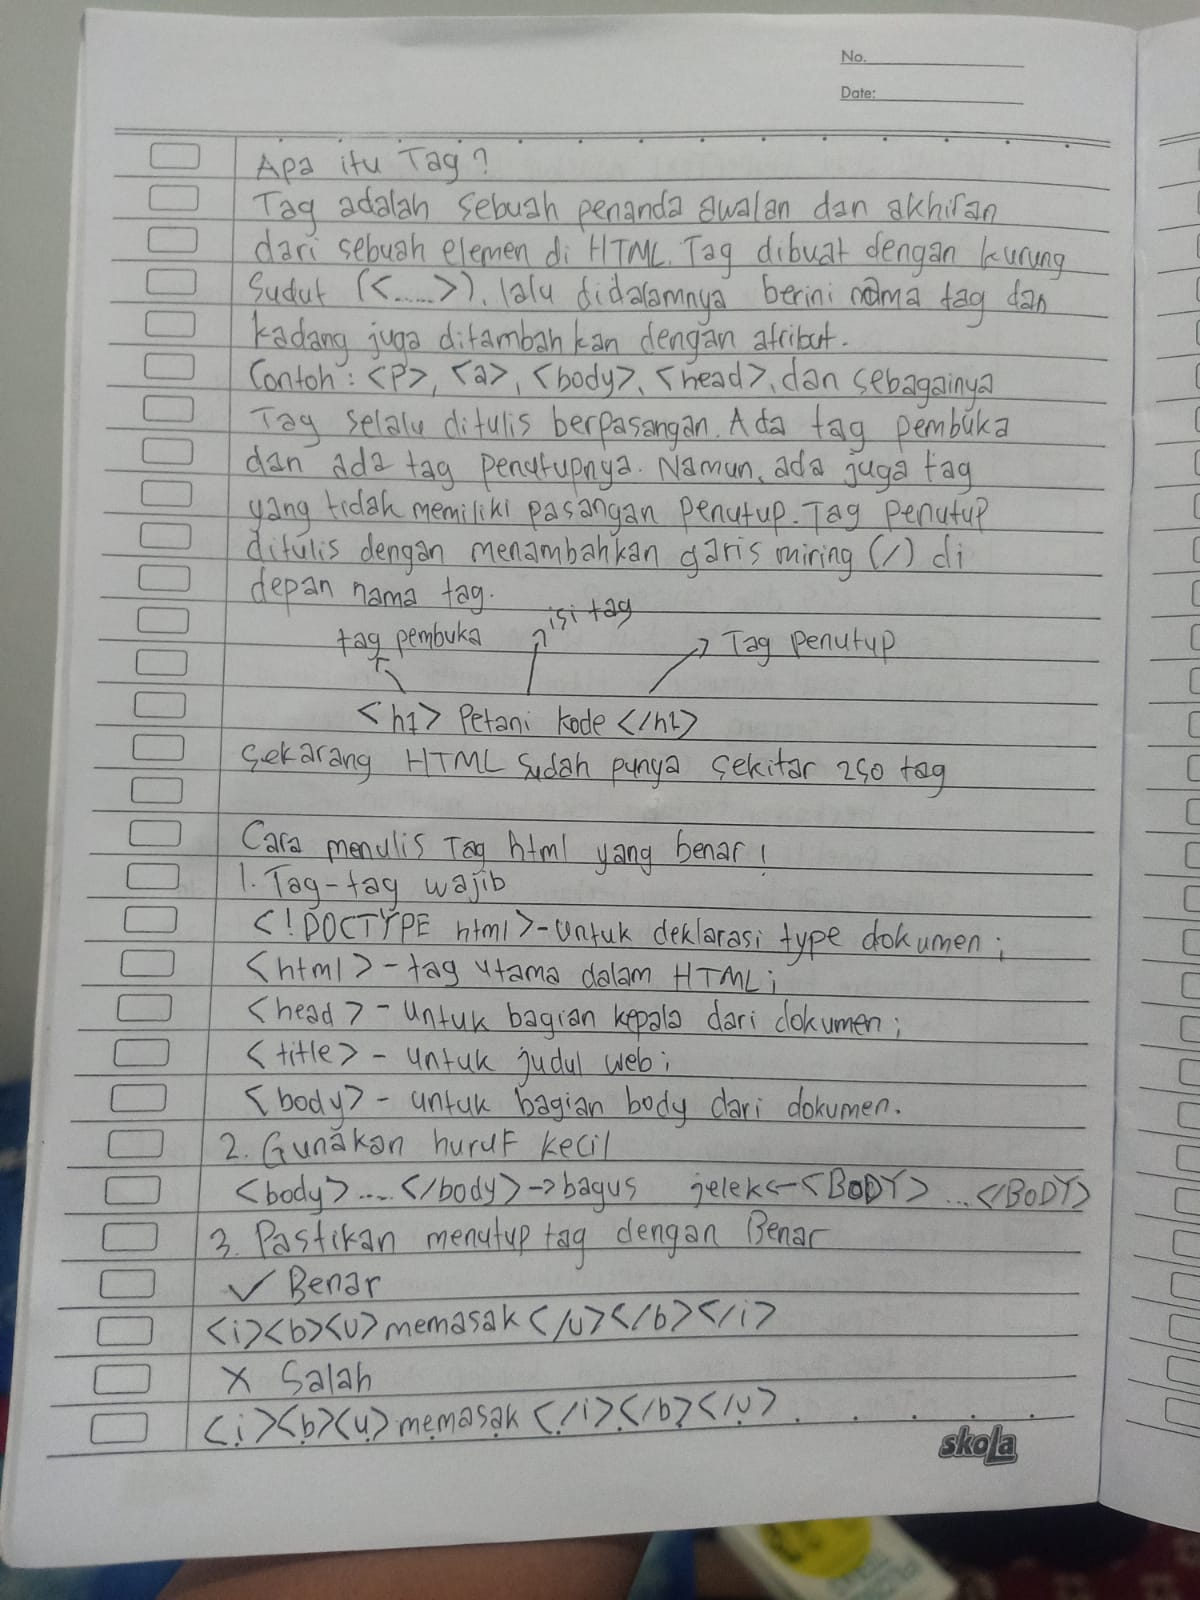 No.
Date:
Apa itu Tag?
Tag adalah sebuah penanda awalan dan akhiran
dari sebuah elemen di HTML. Tag dibuat dengan kurung
Sudut (<......>), lalu didalamnya berini nama tag dan
kadang juga ditambahkan dengan atribut.
Contoh : <P>, <a>, <body>, <head>, dan sebagainya
Tag selalu ditulis berpasangan. Ada tag pembuka
dan ada tag penutupnya. Namun, ada juga tag
yang tidak memiliki pasangan penutup. Tag penutup
ditulis dengan menambahkan garis miring (/) di
depan nama tag.
tag pembuka isi tag Tag penutup
<h1> Petani kode </h1>
Sekarang HTML sudah punya sekitar 250 tag
Cara menulis Tag html yang benar!
1. Tag-tag wajib
<!DOCTYPE html> - Untuk deklarasi type dokumen;
<html> - tag utama dalam HTML;
<head> - Untuk bagian kepala dari dokumen;
<title> - untuk judul web;
<body> - untuk bagian body dari dokumen.
2. Gunakan huruf kecil
<body>.....</body> -> bagus jelek <- <BODY> ...</BODY>
3. Pastikan menutup tag dengan Benar
✓ Benar
<i><b><u> memasak </u></b></i>
X Salah
<i><b><u> memasak </i></b></u>
skola